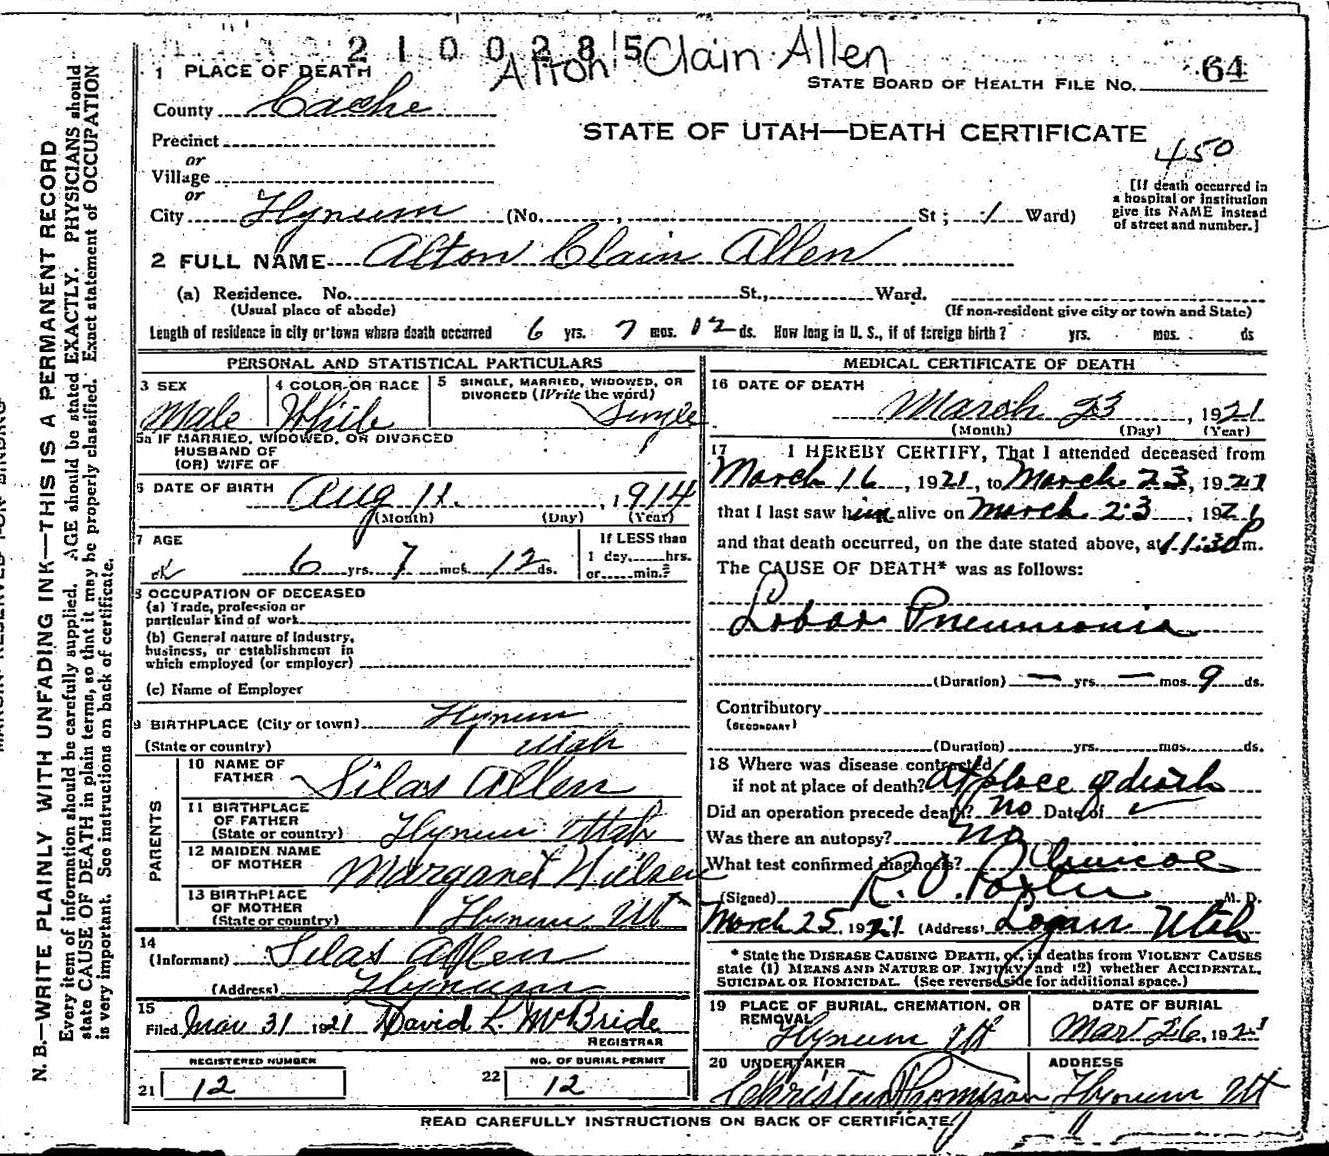 2 1 0 0 2 8 5
Alton Clain Allen
64
STATE BOARD OF HEALTH FILE NO.
1 PLACE OF DEATH
County Cache
STATE OF UTAH—DEATH CERTIFICATE
450
Precinct
or
Village
or
City Hyrum (No. , St; 1 Ward)
[If death occurred in
a hospital or institution
give its NAME instead
of street and number.]
2 FULL NAME Alton Clain Allen
(a) Residence. No. St., Ward.
(Usual place of abode) (If non-resident give city or town and State)
Length of residence in city or town where death occurred 6 yrs. 7 mos. 12 ds. How long in U. S., if of foreign birth? yrs. mos. ds
PERSONAL AND STATISTICAL PARTICULARS
3 SEX
Male
4 COLOR OR RACE
White
5 SINGLE, MARRIED, WIDOWED, OR
DIVORCED (Write the word)
Single
5a IF MARRIED, WIDOWED, OR DIVORCED
HUSBAND OF
(OR) WIFE OF
6 DATE OF BIRTH Aug 11, 1914
(Month) (Day) (Year)
7 AGE
6 yrs. 7 mos. 12 ds.
If LESS than
1 day, hrs.
or min.?
8 OCCUPATION OF DECEASED
(a) Trade, profession or
particular kind of work
(b) General nature of Industry,
business, or establishment in
which employed (or employer)
(c) Name of Employer
9 BIRTHPLACE (City or town) Hyrum
(State or country) Utah
PARENTS
10 NAME OF
FATHER Silas Allen
11 BIRTHPLACE
OF FATHER
(State or country) Hyrum Utah
12 MAIDEN NAME
OF MOTHER Margaret Nielsen
13 BIRTHPLACE
OF MOTHER
(State or country) Hyrum Ut
14
(Informant) Silas Allen
(Address) Hyrum
15
Filed Mar 31 1921 David L. McBride
REGISTRAR
REGISTERED NUMBER
21 12
NO. OF BURIAL PERMIT
22 12
MEDICAL CERTIFICATE OF DEATH
16 DATE OF DEATH
March 23, 1921
(Month) (Day) (Year)
17 I HEREBY CERTIFY, That I attended deceased from
March 16, 1921, to March 23, 1921
that I last saw him alive on March 23, 1921
and that death occurred, on the date stated above, at 11:30 P m.
The CAUSE OF DEATH* was as follows:
Lobar Pneumonia
(Duration) — yrs. — mos. 9 ds.
Contributory
(SECONDARY)
(Duration) yrs. mos. ds.
18 Where was disease contracted
if not at place of death? At place of death
Did an operation precede death? no Date of
Was there an autopsy? no
What test confirmed diagnosis? Clinical
(Signed) R. O. Porter M. D.
March 25, 1921 (Address) Logan Utah
* State the DISEASE CAUSING DEATH, or, in deaths from VIOLENT CAUSES
state (1) MEANS AND NATURE OF INJURY and (2) whether ACCIDENTAL,
SUICIDAL OR HOMICIDAL. (See reverse side for additional space.)
19 PLACE OF BURIAL, CREMATION, OR
REMOVAL
Hyrum Ut
DATE OF BURIAL
Mar 26, 1921
20 UNDERTAKER
Thomson
ADDRESS
Hyrum Ut
READ CAREFULLY INSTRUCTIONS ON BACK OF CERTIFICATE
N. B.—WRITE PLAINLY WITH UNFADING INK—THIS IS A PERMANENT RECORD
Every item of information should be carefully supplied. AGE should be stated EXACTLY. PHYSICIANS should
state CAUSE OF DEATH in plain terms, so that it may be properly classified. Exact statement of OCCUPATION
is very important. See instructions on back of certificate.